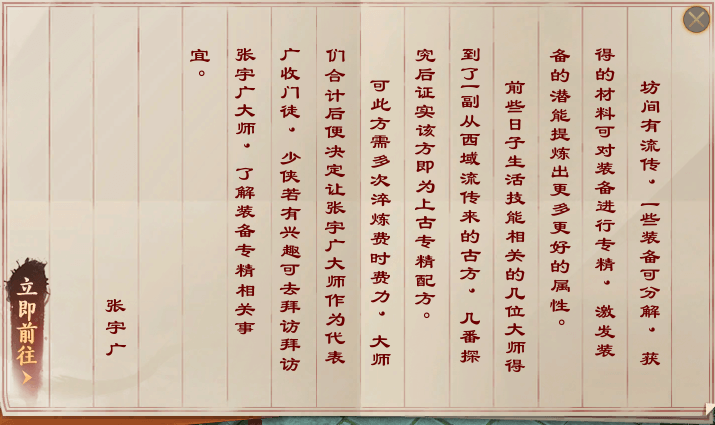 坊间有流传，一些装备可分解，获
得的材料可对装备进行专精，激发装
备的潜能提炼出更多更好的属性。
前些日子生活技能相关的几位大师得
到了一副从西域流传来的古方，几番探
究后证实该方即为上古专精配方。
可此方需多次淬炼费时费力，大师
们合计后便决定让张宇广大师作为代表
广收门徒，少侠若有兴趣可去拜访拜访
张宇广大师，了解装备专精相关事
宜。
张宇广
立即前往